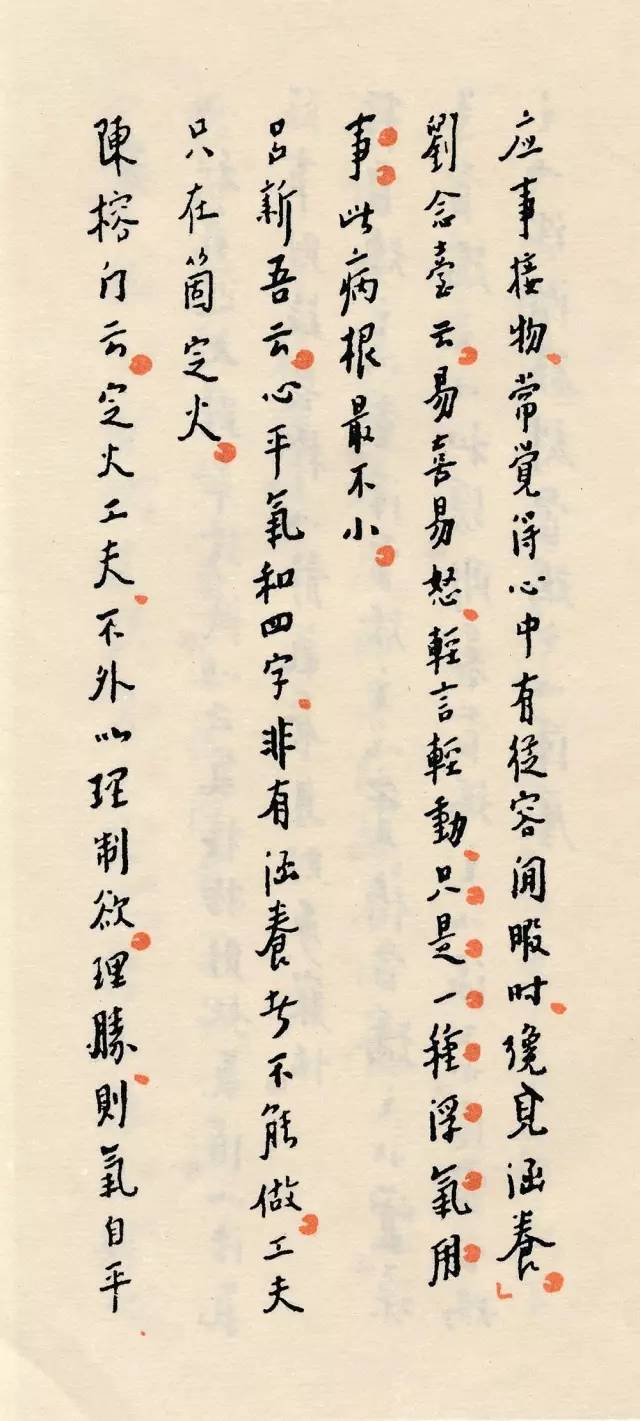 应事接物、常覺得心中有從容閒暇时、纔見涵養。」
劉念臺云。易喜易怒、輕言輕動、只是一種浮氣用
事。此病根最不小。
吕新吾云。心平氣和四字、非有涵養者不能做。工夫
只在箇定火。
陳榕门云。定火工夫、不外以理制欲。理勝、則氣自平